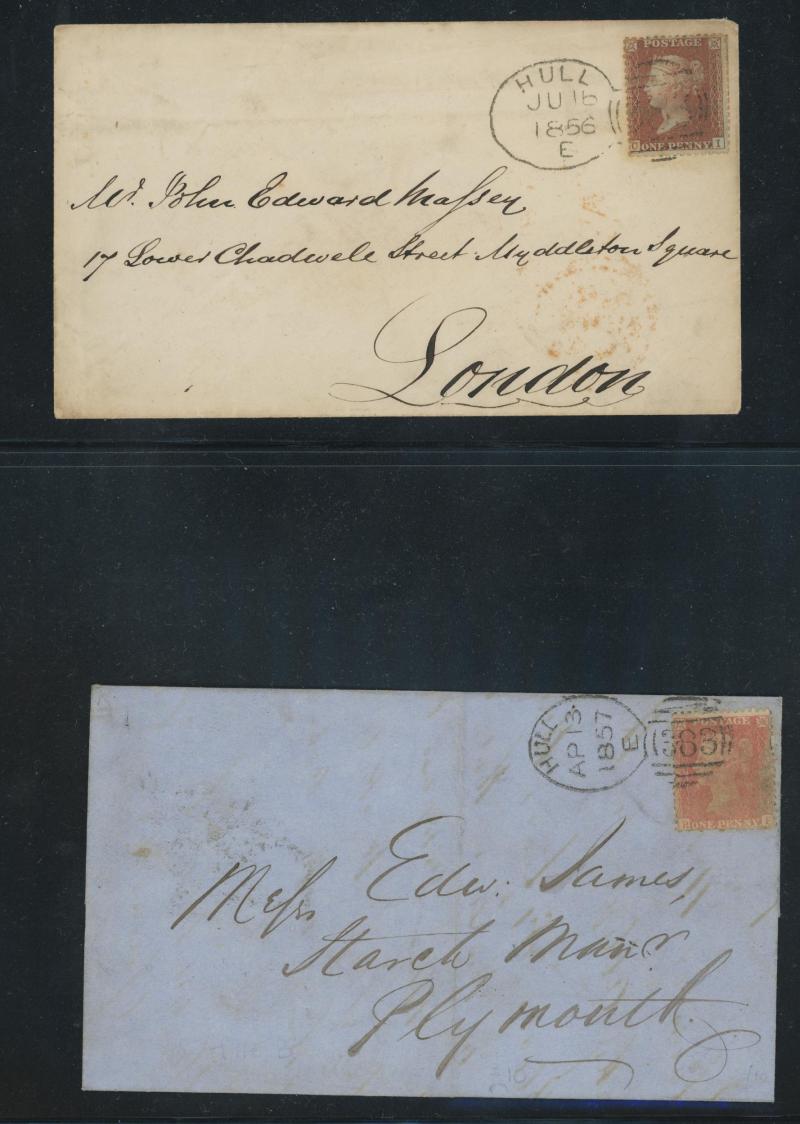 HULL
JU 16
1856
E
POSTAGE
ONE PENNY
I
Mr. John Edward Massey
17 Lower Chadwele Street Myddleton Square
London
HULL
AP 13
1857
E
383
POSTAGE
ONE PENNY
Messrs Edwd. James,
Starch Manrs
Plymouth